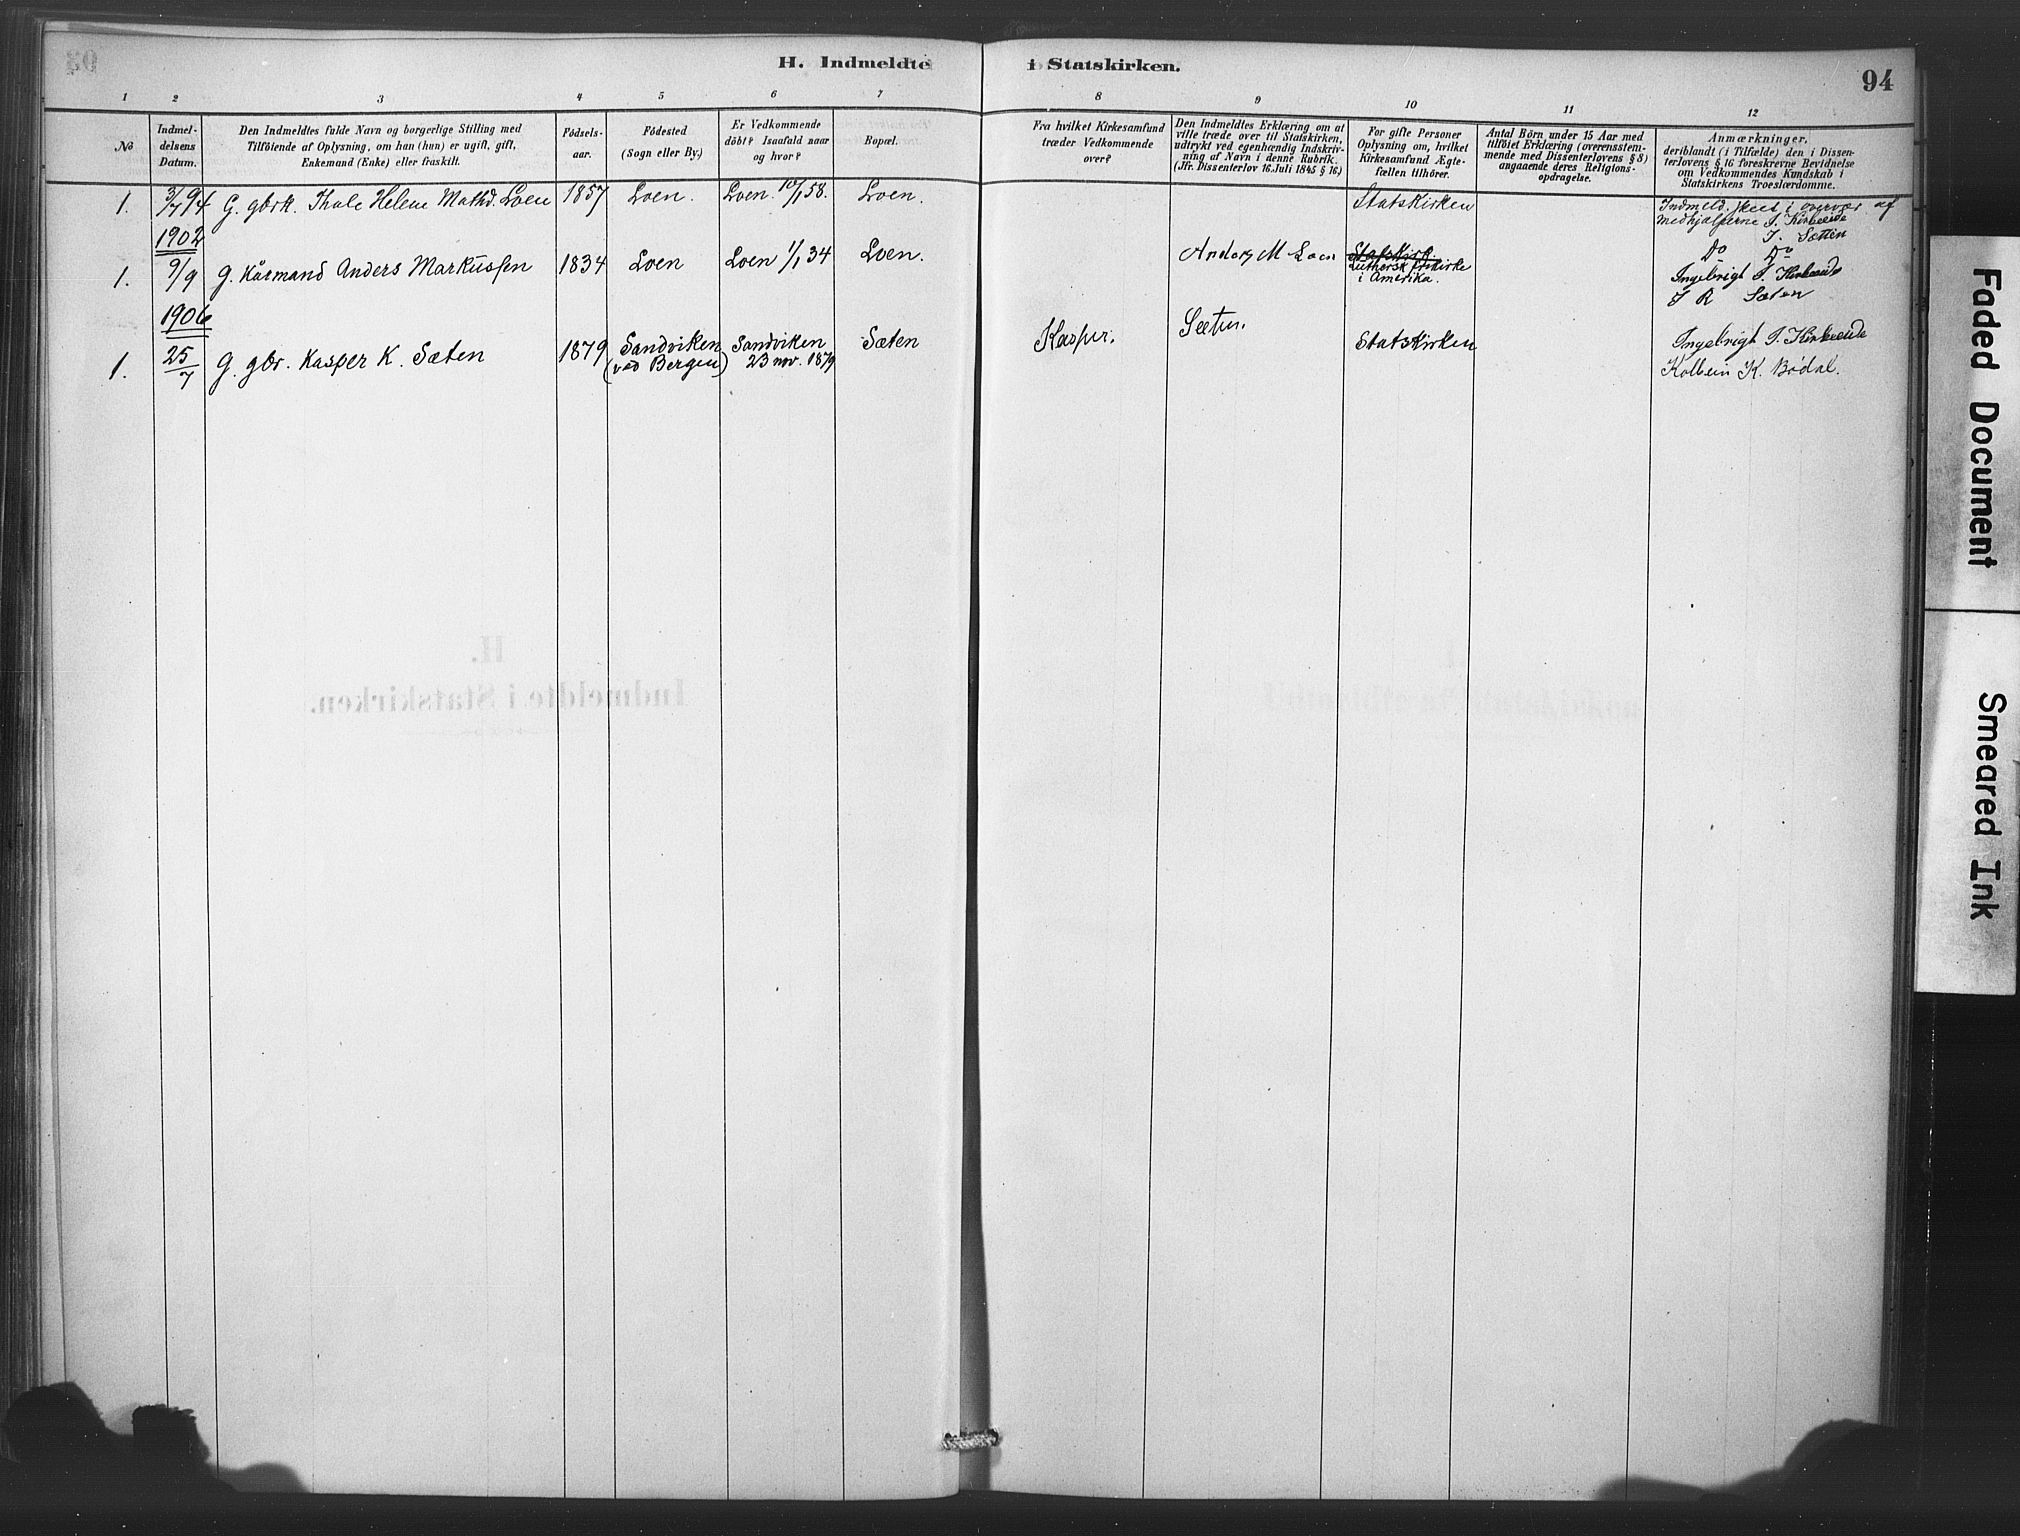 H. Indmeldte i Statskirken.
94
1 2 3 4 5 6 7 8 9 10 11 12
No
Indmel-
delsens
Datum.
Den Indmeldtes fulde Navn og borgerlige Stilling med
Tilföiende af Oplysning, om han (hun) er ugift, gift,
Enkemand (Enke) eller fraskilt.
Födsels-
aar.
Födested
(Sogn eller By.)
Er Vedkommende
döbt? Isaafald naar
og hvor?
Bopæl.
Fra hvilket Kirkesamfund
træder Vedkommende
over?
Den Indmeldtes Erklæring om at
ville træde over til Statskirken,
udtrykt ved egenhændig Indskriv-
ning af Navn i denne Rubrik.
(Jfr. Dissenterlov 16. Juli 1845 § 16.)
For gifte Personer
Oplysning om, hvilket
Kirkesamfund Ægte-
fællen tilhörer.
Antal Börn under 15 Aar med
tilföiet Erklæring (overensstem-
mende med Dissenterlovens § 8)
angaaende deres Religions-
opdragelse.
Anmærkninger,
deriblandt (i Tilfælde) den i Dissen-
terlovens § 16 foreskrevne Bevidnelse
om Vedkommendes Kundskab i
Statskirkens Troeslærdomme.
1. 3/7 94 G. gbrk. Thale Helene Mathd. Loen 1857 Loen. Loen. 10/1 58. Loen. Statskirken
Indmeld. skeet i overvær af
Medhjælperne I. Kirkeeide
I. Sætten
1902
1. 9/9 G. Kårmand Anders Markussen 1834 Loen Loen 1/1 34 Loen. Anders M Loen
Statskirk.
Luthersk frikirke
i Amerika.
Do Do
Ingebrigt I. Kirkeeide
I R Sæten
1906
1. 25/7 G. gbr. Kasper K. Sæten 1879 Sandviken
(ved Bergen)
Sandviken
23 nov. 1879
Sæten Kasper. Sæten. Statskirken
Ingebrigt I. Kirkeeide
Kolbein K. Bødal.
H.
Indmeldte i Statskirken.
Faded Document
Smeared Ink